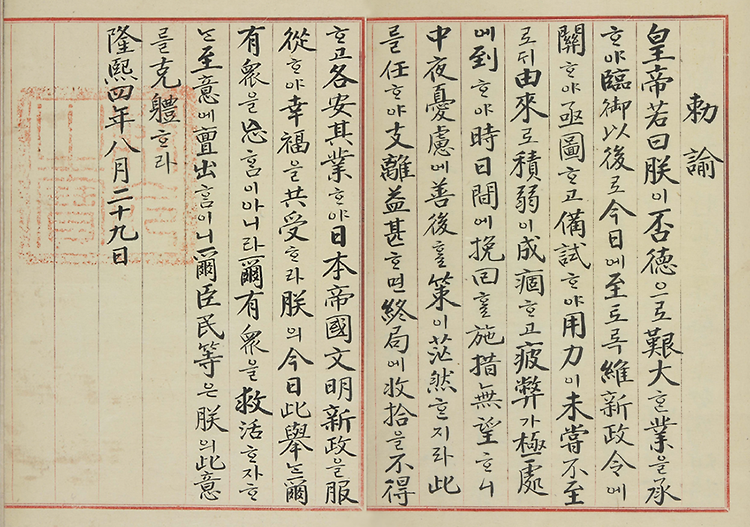 勅諭
皇帝若曰朕이否德으로艱大ᄒᆞᆫ業을承
ᄒᆞ야臨御以後로今日에至도록維新政令에
關ᄒᆞ야亟圖ᄒᆞ고備試ᄒᆞ야用力이未嘗不至
로ᄃᆡ由來로積弱이成痼ᄒᆞ고疲弊가極處
에到ᄒᆞ야時日間에挽回ᄒᆞᆯ施措無望ᄒᆞ니
中夜憂慮에善後ᄒᆞᆯ策이茫然ᄒᆞᆫ지라此
를任ᄒᆞ야支離益甚ᄒᆞ면終局에收拾을不得
ᄒᆞ고各安其業ᄒᆞ야日本帝國文明新政을服
從ᄒᆞ야幸福을共受ᄒᆞ라朕의今日此擧ᄂᆞᆫ爾
有衆을忘ᄒᆞᆷ이아니라爾有衆을救活ᄒᆞ자ᄒᆞ
ᄂᆞᆫ至意에亶出ᄒᆞᆷ이니爾臣民等은朕의此意
를克體ᄒᆞ라
隆熙四年八月二十九日